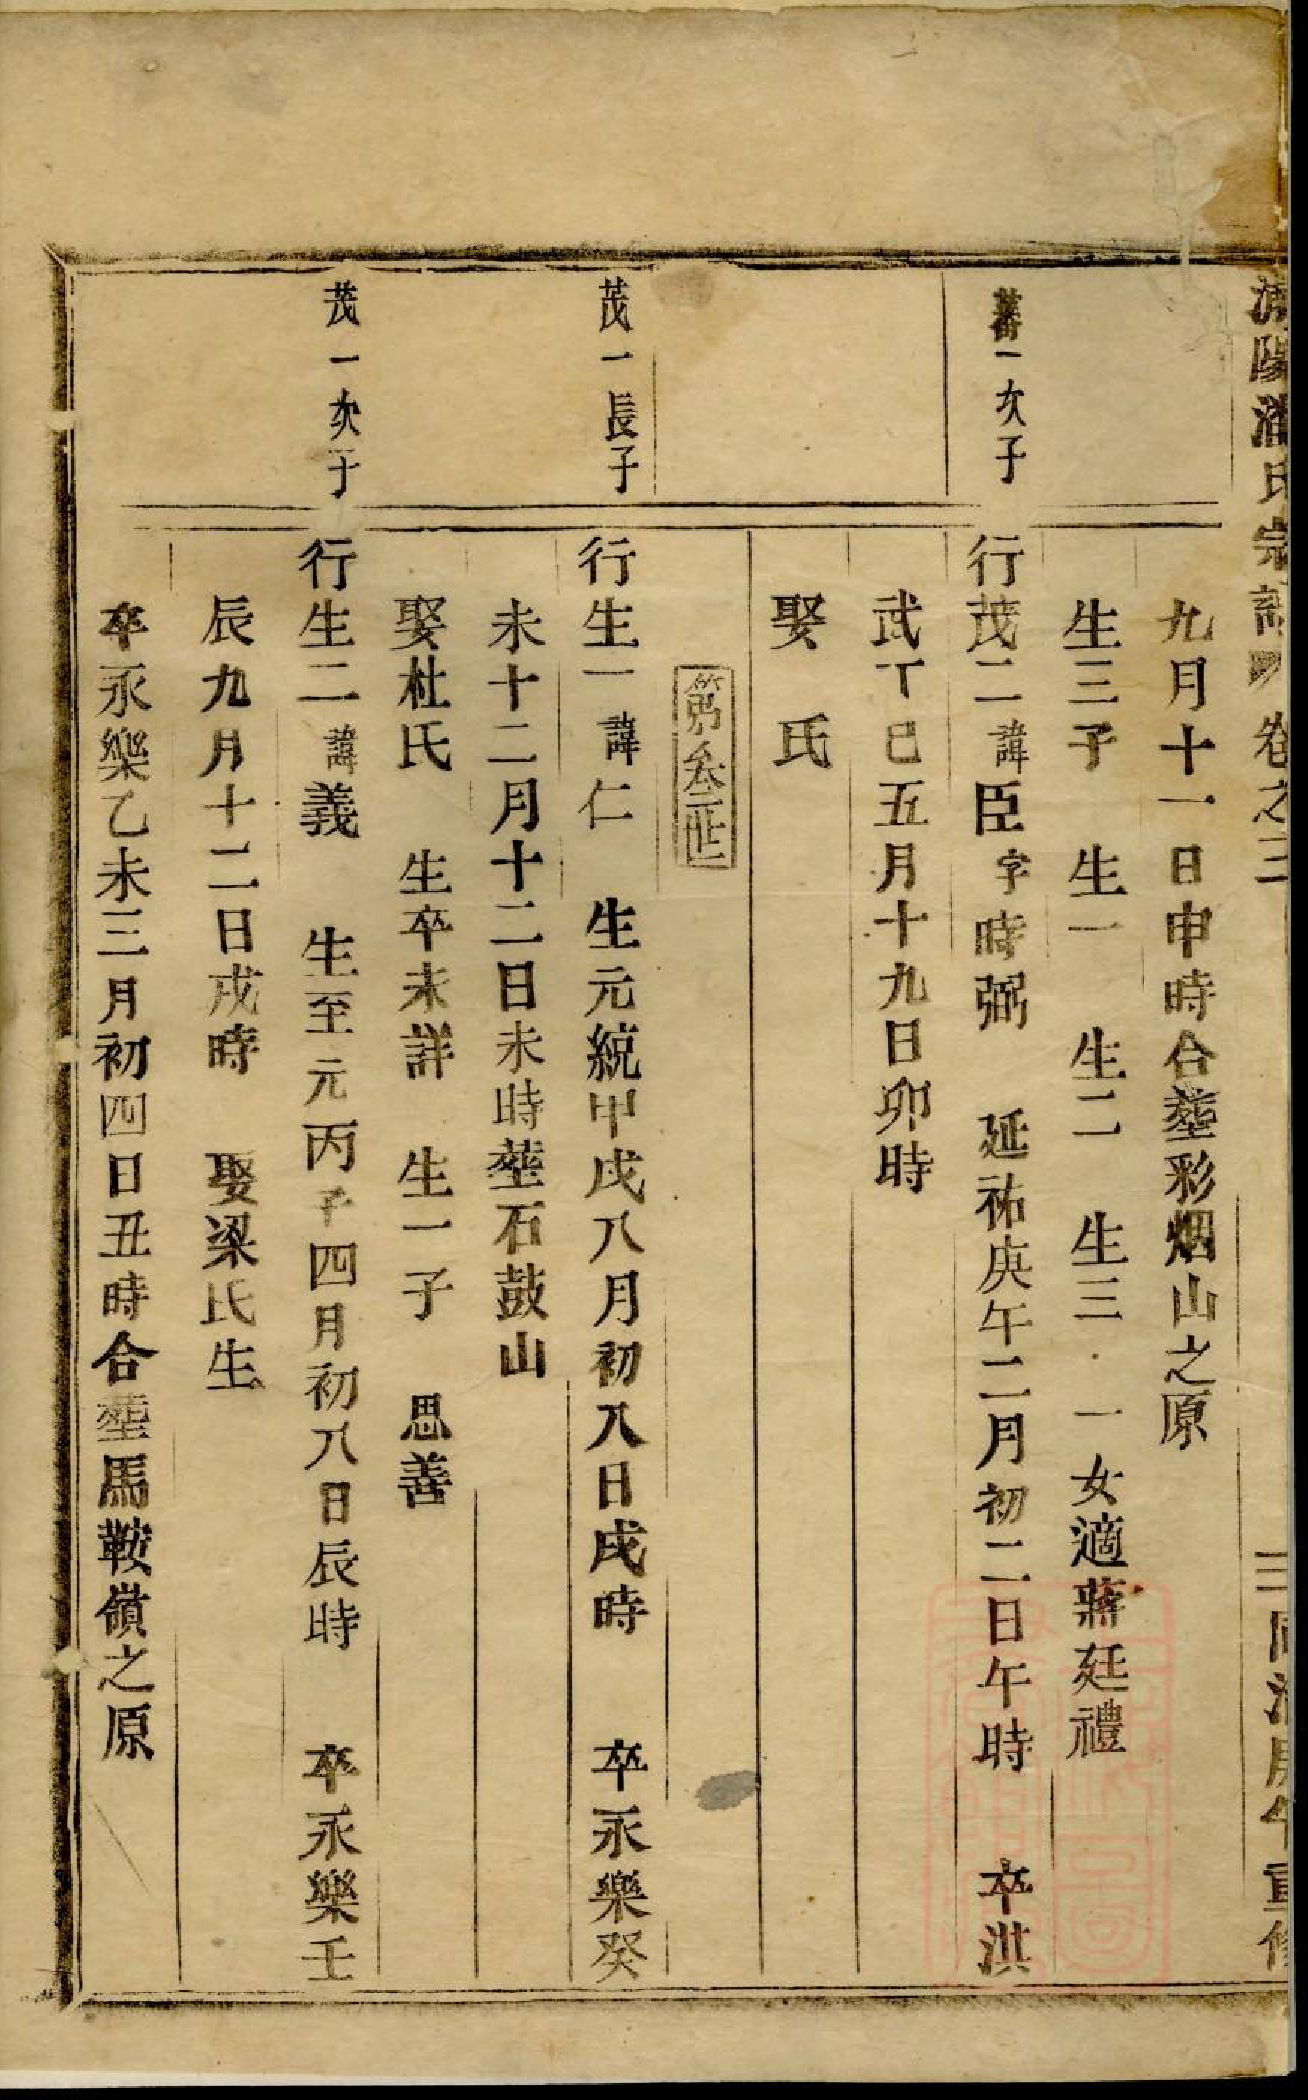 陽潘氏宗譜 卷之三 三 同治庚午重修
九月十一日申時合塟彩烟山之原
生三子 生一 生二 生三 一女適蔣廷禮
蕃一次子
行茂二諱臣字時弼 延祐庚午二月初二日午時 卒淇
武丁巳五月十九日卯時
娶 氏
第叁世
茂一長子
行生一諱仁 生元統甲戌八月初八日戌時 卒永樂癸
未十二月十二日未時塟石鼓山
娶杜氏 生卒未詳 生一子 思善
茂一次子
行生二諱義 生至元丙子四月初八日辰時 卒永樂壬
辰九月十二日戌時 娶梁氏生
卒永樂乙未三月初四日丑時合塟馬鞍嶺之原